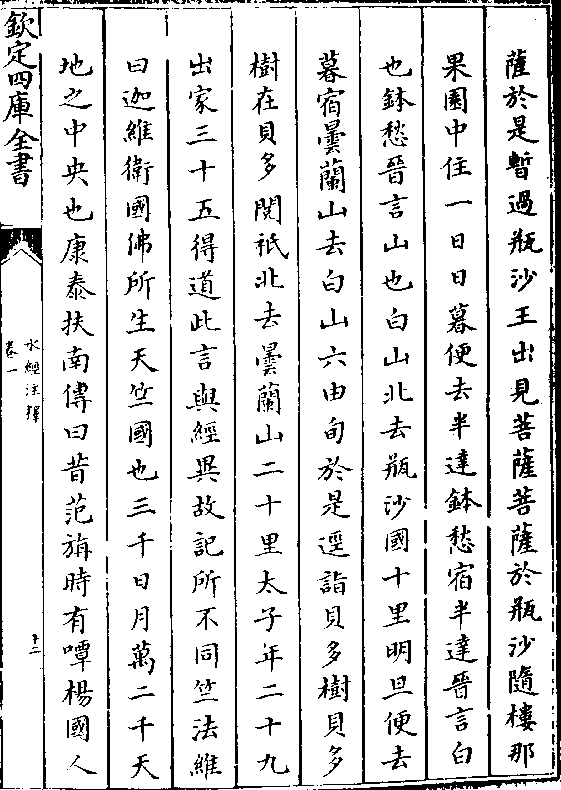 薩於是暫過瓶沙王出見菩薩菩薩於瓶沙隨樓那
果園中住一日日暮便去半達鉢愁宿半達晉言白
也鉢愁晉言山也白山北去瓶沙國十里明旦便去
暮宿曇蘭山去白山六由旬於是逕詣貝多樹貝多
樹在貝多閱祇北去曇蘭山二十里太子年二十九
出家三十五得道此言與經異故記所不同竺法維
曰迦維衛國佛所生天竺國也三千日月萬二千天
地之中央也康泰扶南傳曰昔范旃時有嘾楊國人
欽定四庫全書
水經注釋
卷一
十二